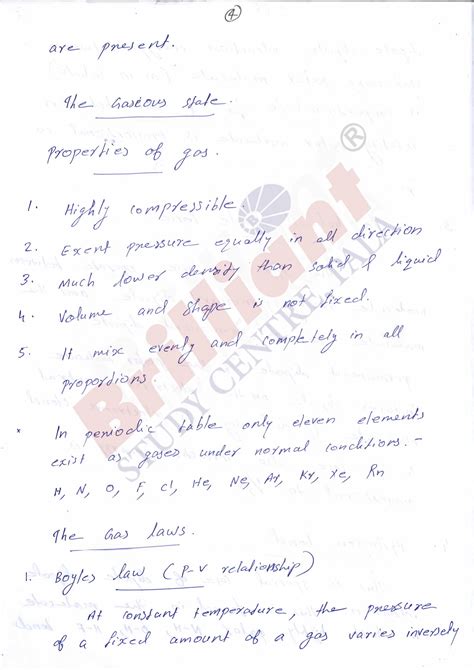 4
are present.
The Gaseous state.
properties of gas.
1. Highly compressible.
2. Exent pressure equally in all direction
3. Much lower density than solid & liquid
4. Volume and shape is not fixed.
5. It mix evenly and completely in all
proportions.
* In periodic table only eleven elements
exist as gases under normal conditions. -
H, N, O, F, Cl, He, Ne, Ar, Kr, Xe, Rn
The Gas laws.
1. Boyles law (P-V relationship)
At constant temperature, the pressure
of a fixed amount of a gas varies inversely
Brilliant ®
STUDY CENTRE, PALA